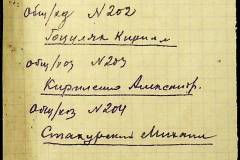 Общ/код №202
Гоцуляк Кирилл
общ/коз №203
Кириленко Александр.
Общ/коз №204
Стахурский Михаил